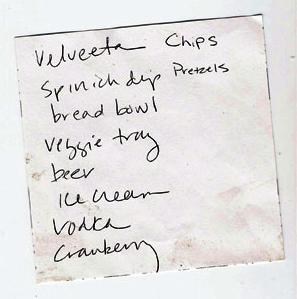 Velveeta Chips
Spinich dip Pretzels
bread bowl
veggie tray
beer
Ice cream
Vodka
Cranberry